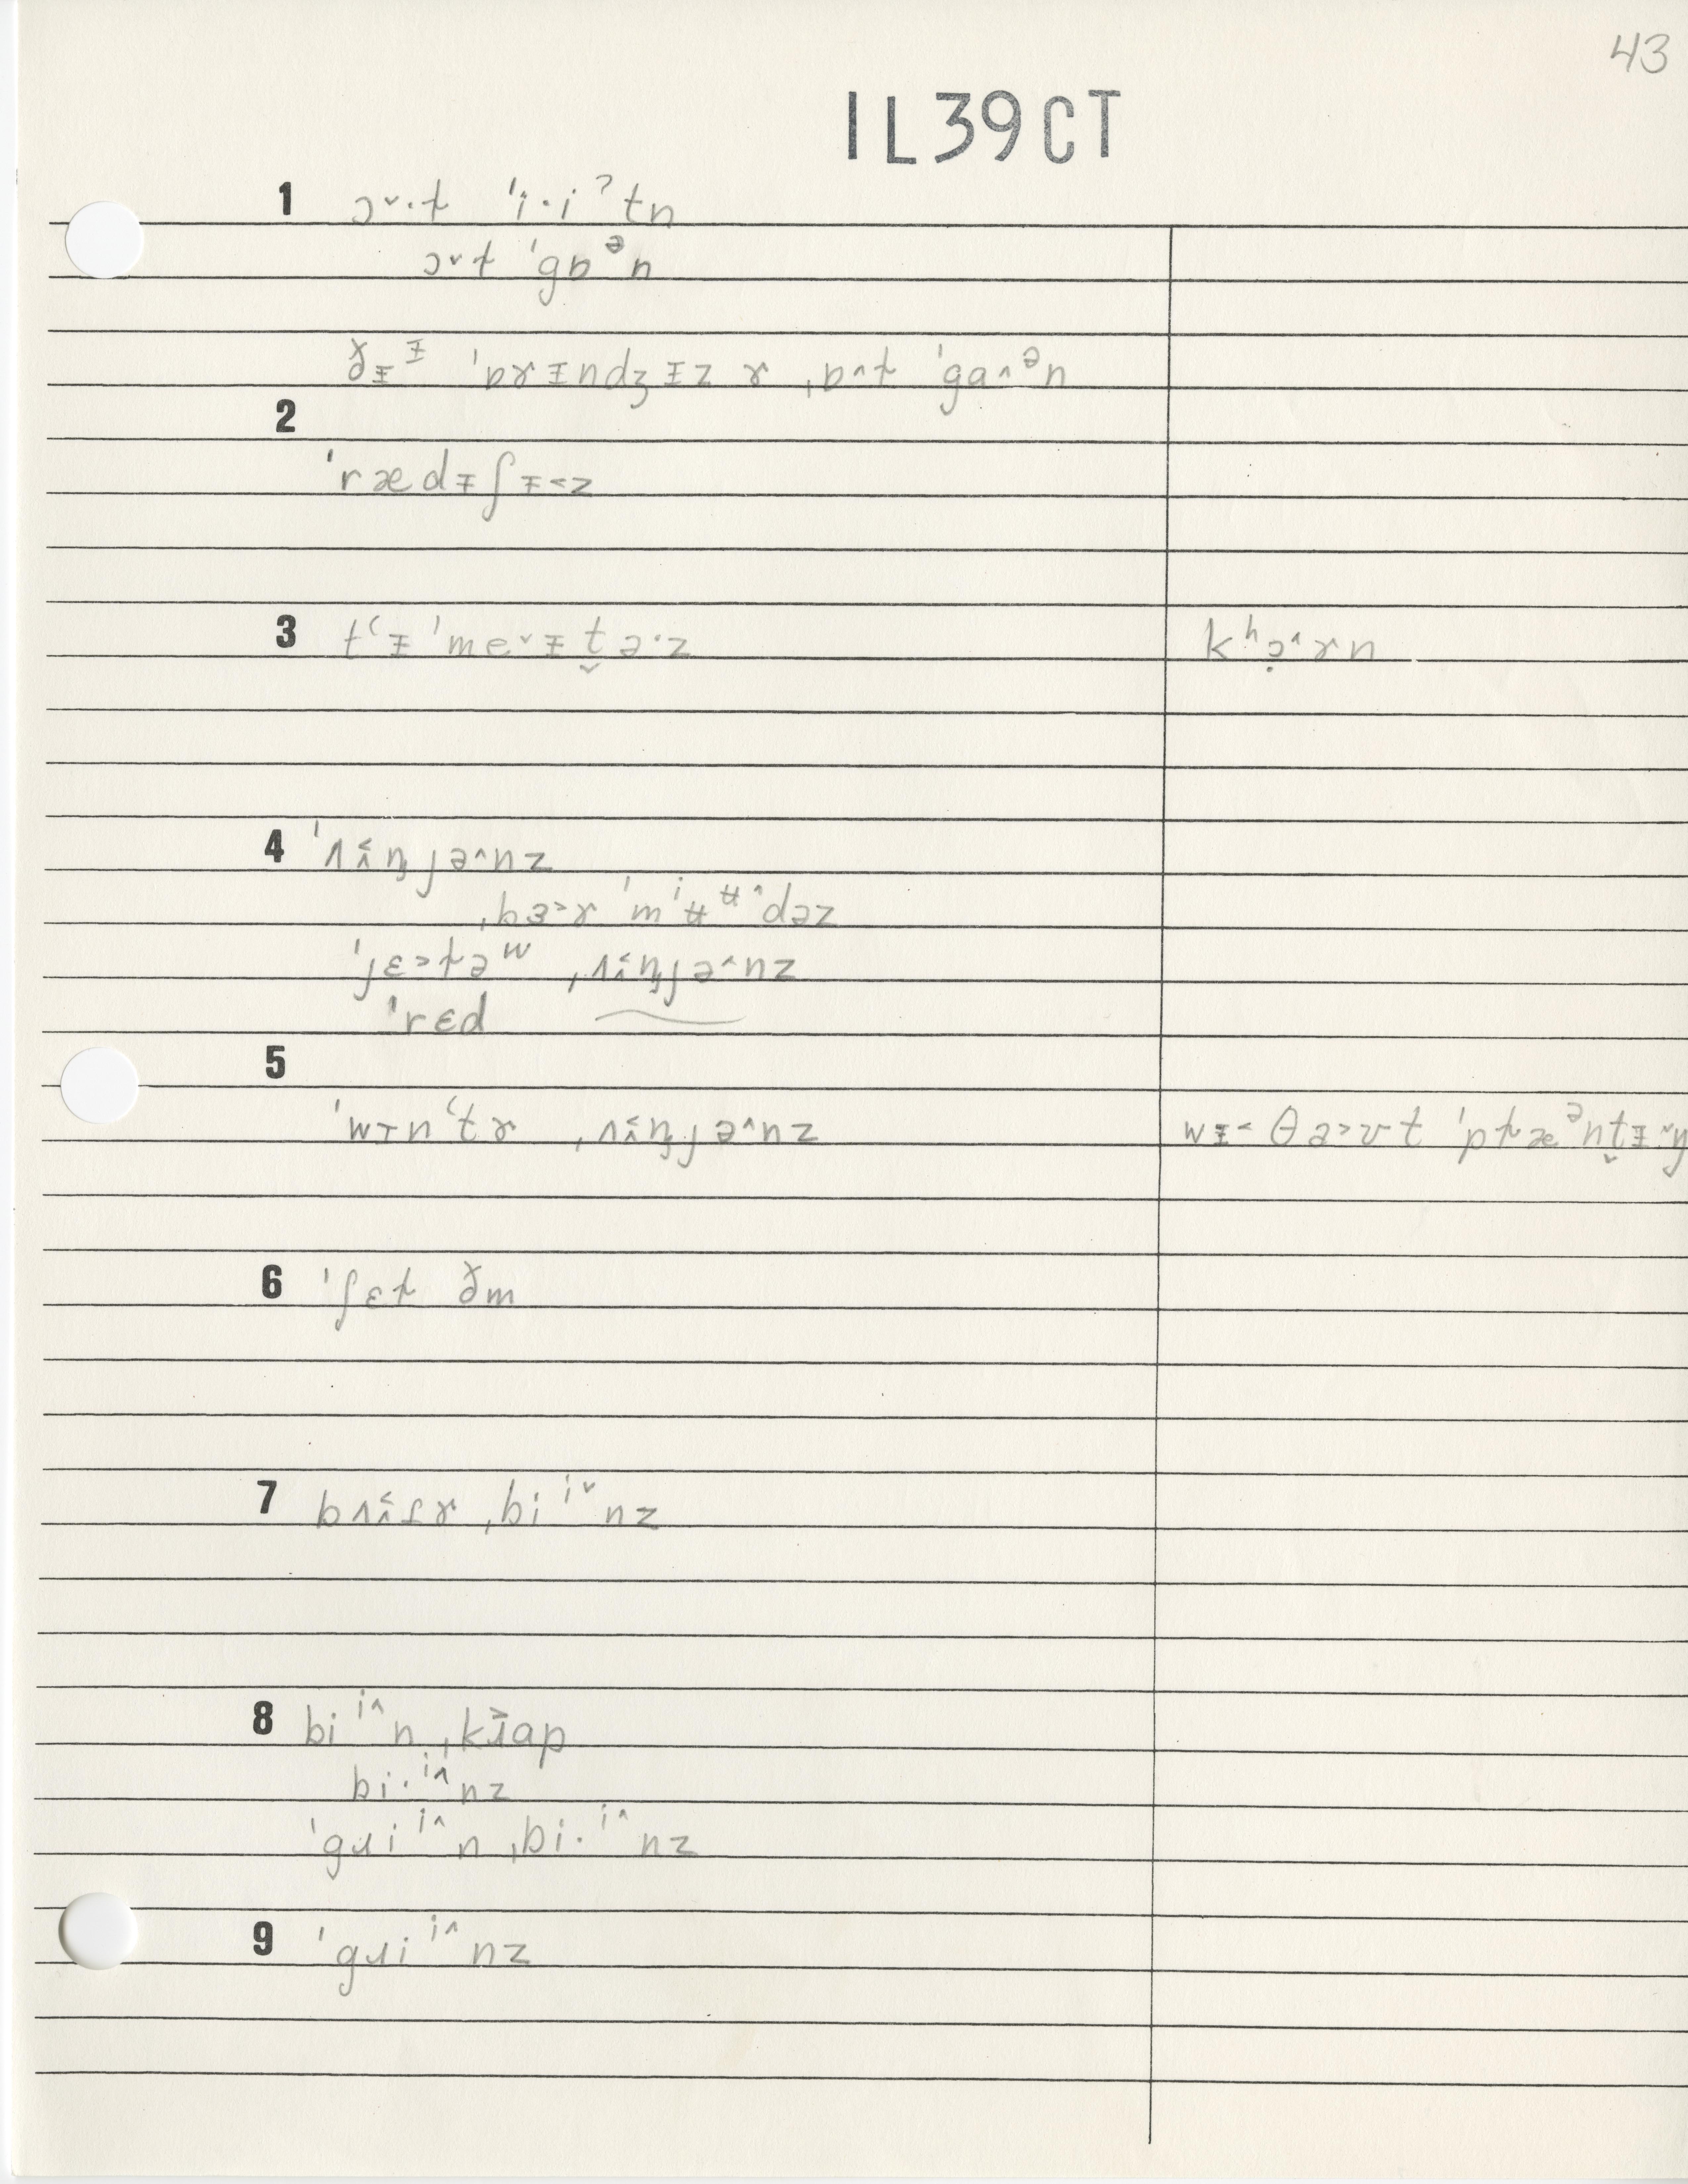 43
IL39CT
1 ɔ˅·ɫ ˈi·iˀtn
ɔ˅ɫ ˈgɒᵊn
ðɪ̵ᶦ̵ ˈɒɚɪ̵ndʒɪ̵z ɚ ˌɒ˄ɫ ˈga˄ᵊn
2
ˈrædɪ̵ʃɪ̵˂z
3 tʻɪ̵ ˈme˅ɪ̵t̬ə·z kʰə̣˄ɚn
4 ˈʌɪ̯nj ə˄nz
ˌbɜ˃ɚ ˈmⁱʉᶶ˄dəz
ˈjɛ˃ɫəʷ ˌʌnjə˄nz
ˈrɛd
5
ˈwɪnʻtɚ ˌʌnjə˄nz wɪ̵˂ θə˃ʊt ˈpɫæᵊnt̬ɪ̵˅ŋ
6 ˈʃɛɫ ðm
7 bʌɾɚ ˌbiⁱ˅nz
8 biⁱ˄n ˌkɹap
bi·ⁱ˄nz
ˈgɹiⁱ˄n ˌbi·ⁱ˄nz
9 ˈgɹiⁱ˄nz